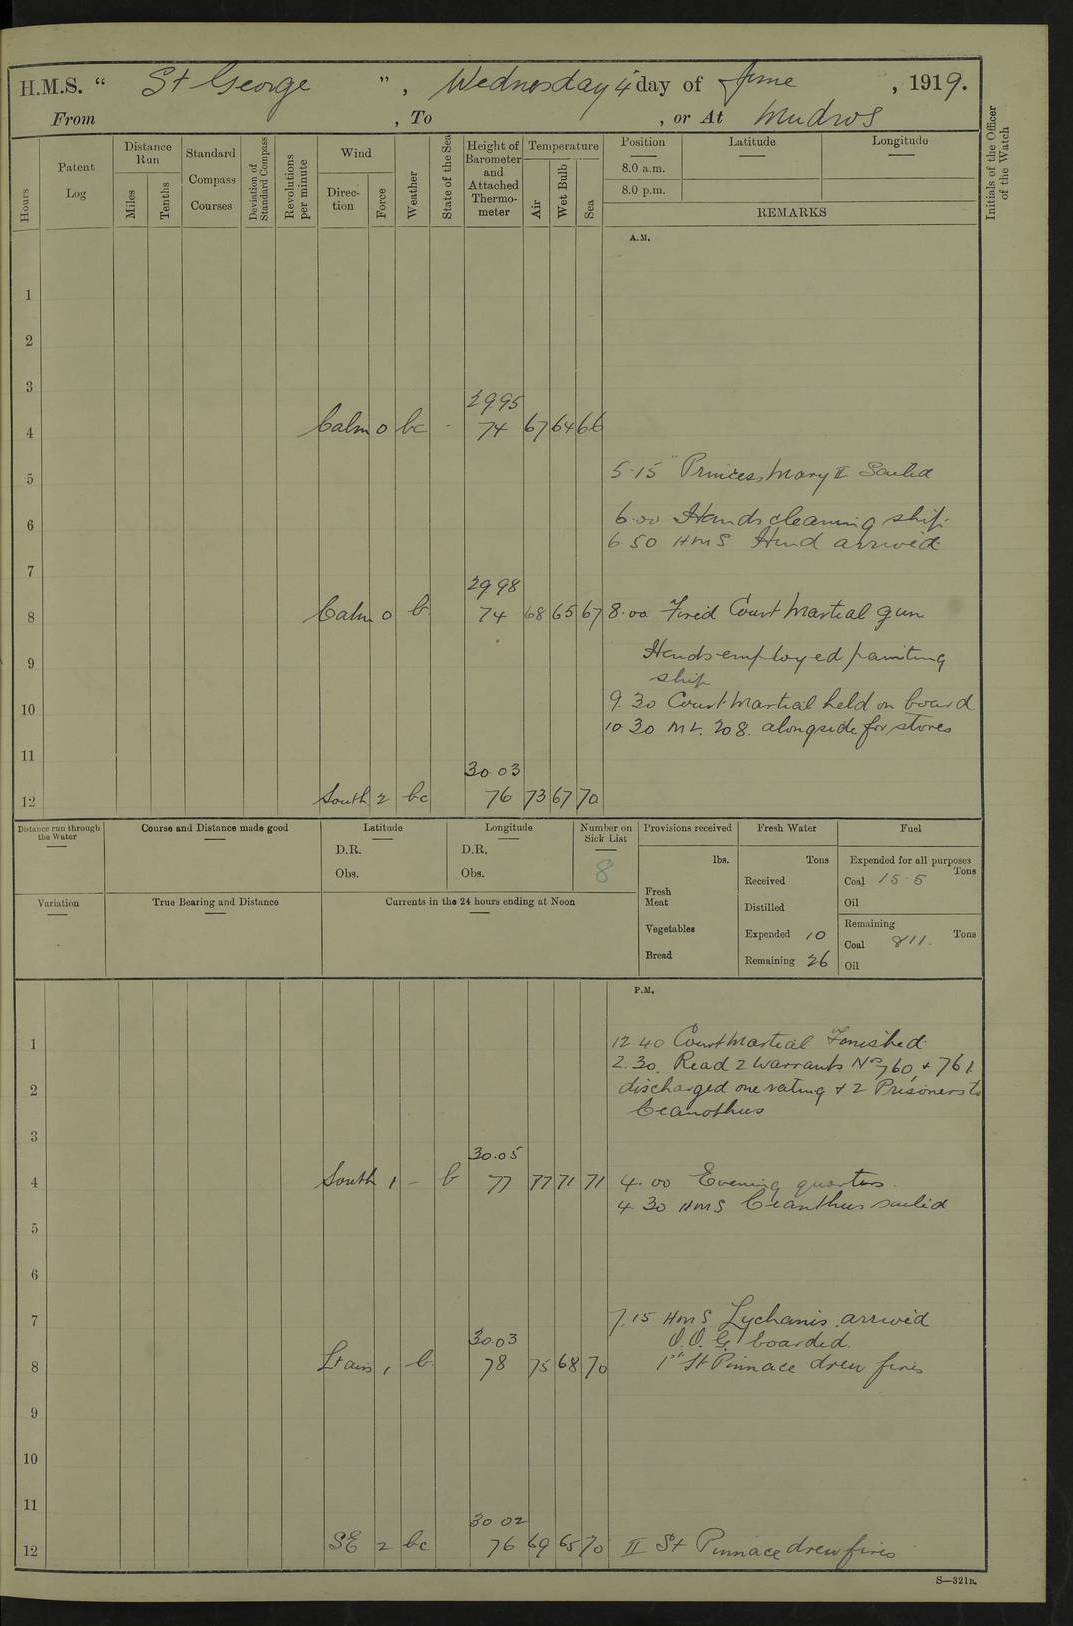 H.M.S. “ St George ” , Wednesday 4 day of June , 1919.
From , To , or At Mudros
Hours
Patent Log
Distance Run
Miles
Tenths
Standard Compass Courses
Deviation of Standard Compass
Revolutions per minute
Wind
Direction
Force
Weather
State of the Sea
Height of Barometer and Attached Thermometer
Temperature
Air
Wet Bulb
Sea
Position
8.0 a.m.
8.0 p.m.
Latitude
Longitude
REMARKS
Initials of the Officer of the Watch
A.M.
1
2
3
29.95
4 Calm 0 bc - 74 67 64 66
5 5.15 Princess Mary II Sailed
6 6.00 Hands cleaning ship.
6.50 HMS Hind arrived.
7
29 98
8 Calm 0 b 74 68 65 67 8.00 Fired Court Martial gun
9 Hands employed painting
ship
10 9.30 Court Martial held on board
10 30 ML. 208. alongside for stores
11
30.03
12 South 2 bc 76 73 67 70
Distance run through the Water
Course and Distance made good
Latitude
D.R.
Obs.
Longitude
D.R.
Obs.
Number on Sick List
8
Provisions received
lbs.
Fresh Meat
Vegetables
Bread
Fresh Water
Tons
Received
Distilled
Expended 10
Remaining 26
Fuel
Expended for all purposes
Coal 15.5 Tons
Oil
Remaining
Coal 811. Tons
Oil
Variation
True Bearing and Distance
Currents in the 24 hours ending at Noon
P.M.
1 12.40 Court Martial Finished.
2.30. Read 2 Warrants Nos 760 + 761
2 discharged one rating + 2 Prisoners to
Ceanothus
3
30.05
4 South 1 - b 77 77 71 71 4.00 Evening quarters.
4.30 HMS Ceanthus sailed
5
6
7 7.15 HMS Lychanis arrived
30.03 O.O.G. boarded.
8 1 b 78 75 68 70 1st St Pinnace drew fires
9
10
11
30.02
12 SE 2 bc 76 69 65 70 II St Pinnace drew fires
S—321B.